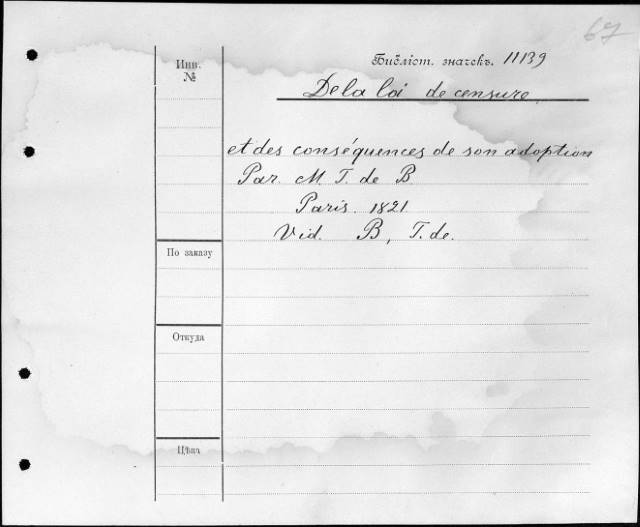 67
Инв.
№
Библіот. значекъ. 11139
De la loi de censure
et des conséquences de son adoption
Par M. T. de B
Paris. 1821
Vid. B, T. de.
По заказу
Откуда
Цѣна